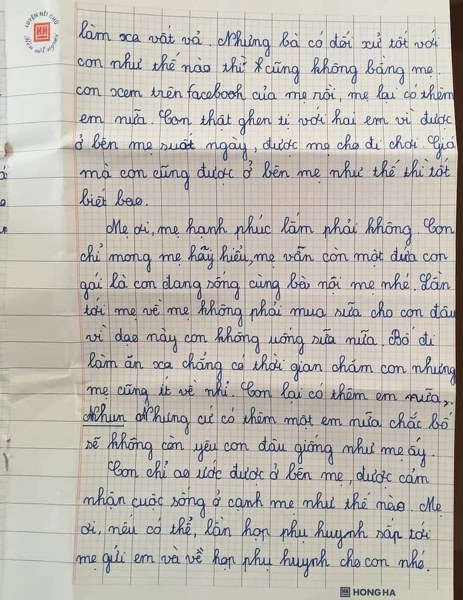 LUYỆN NÉT CHỮ
làm xa vất vả. Nhưng bà có đối xử tốt với
con như thế nào thì cũng không bằng mẹ.
con xem trên facebook của mẹ rồi, mẹ lại có thêm
em nữa. Con thật ghen tị với hai em vì được
ở bên mẹ suốt ngày, được mẹ cho đi chơi. Giá
mà con cũng được ở bên mẹ như thế thì tốt
biết bao.
Mẹ ơi, mẹ hạnh phúc lắm phải không. Con
chỉ mong mẹ hãy hiểu, mẹ vẫn còn một đứa con
gái là con đang sống cùng bà nội mẹ nhé. Lần
tới mẹ về mẹ không phải mua sữa cho con đâu
vì dạo này con không uống sữa nữa. Bố đi
làm ăn xa chẳng có thời gian chăm con nhưng
mẹ cũng ít về nhỉ. Con lại có thêm em nữa,
Nhun Nhưng cứ có thêm một em nữa chắc bố
sẽ không còn yêu con đâu giống như mẹ ấy.
Con chỉ ao ước được ở bên mẹ, được cảm
nhận cuộc sống ở cạnh mẹ như thế nào. Mẹ
ơi, nếu có thể, lần họp phụ huynh sắp tới
mẹ gửi em và về họp phụ huynh cho con nhé.
HONG HA